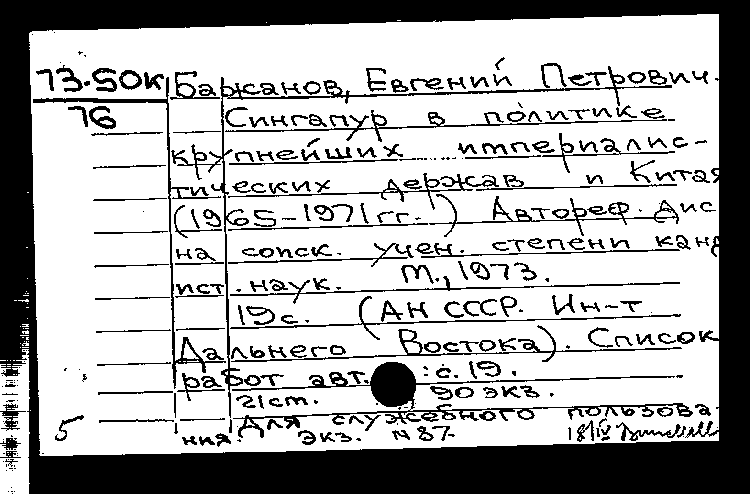 73-50к Бажанов, Евгений Петрович.
76 Сингапур в политике
крупнейших империалис-
тических держав и Китая
(1965-1971гг.) Автореф. дис
на соиск. учен. степени канд
ист. наук. М., 1973.
19с. (АН СССР. Ин-т
Дальнего Востока). Список
работ авт. :с.19.
21ст. 90экз.
Для служебного пользова-
5 ния. Экз. №87. 18/IV